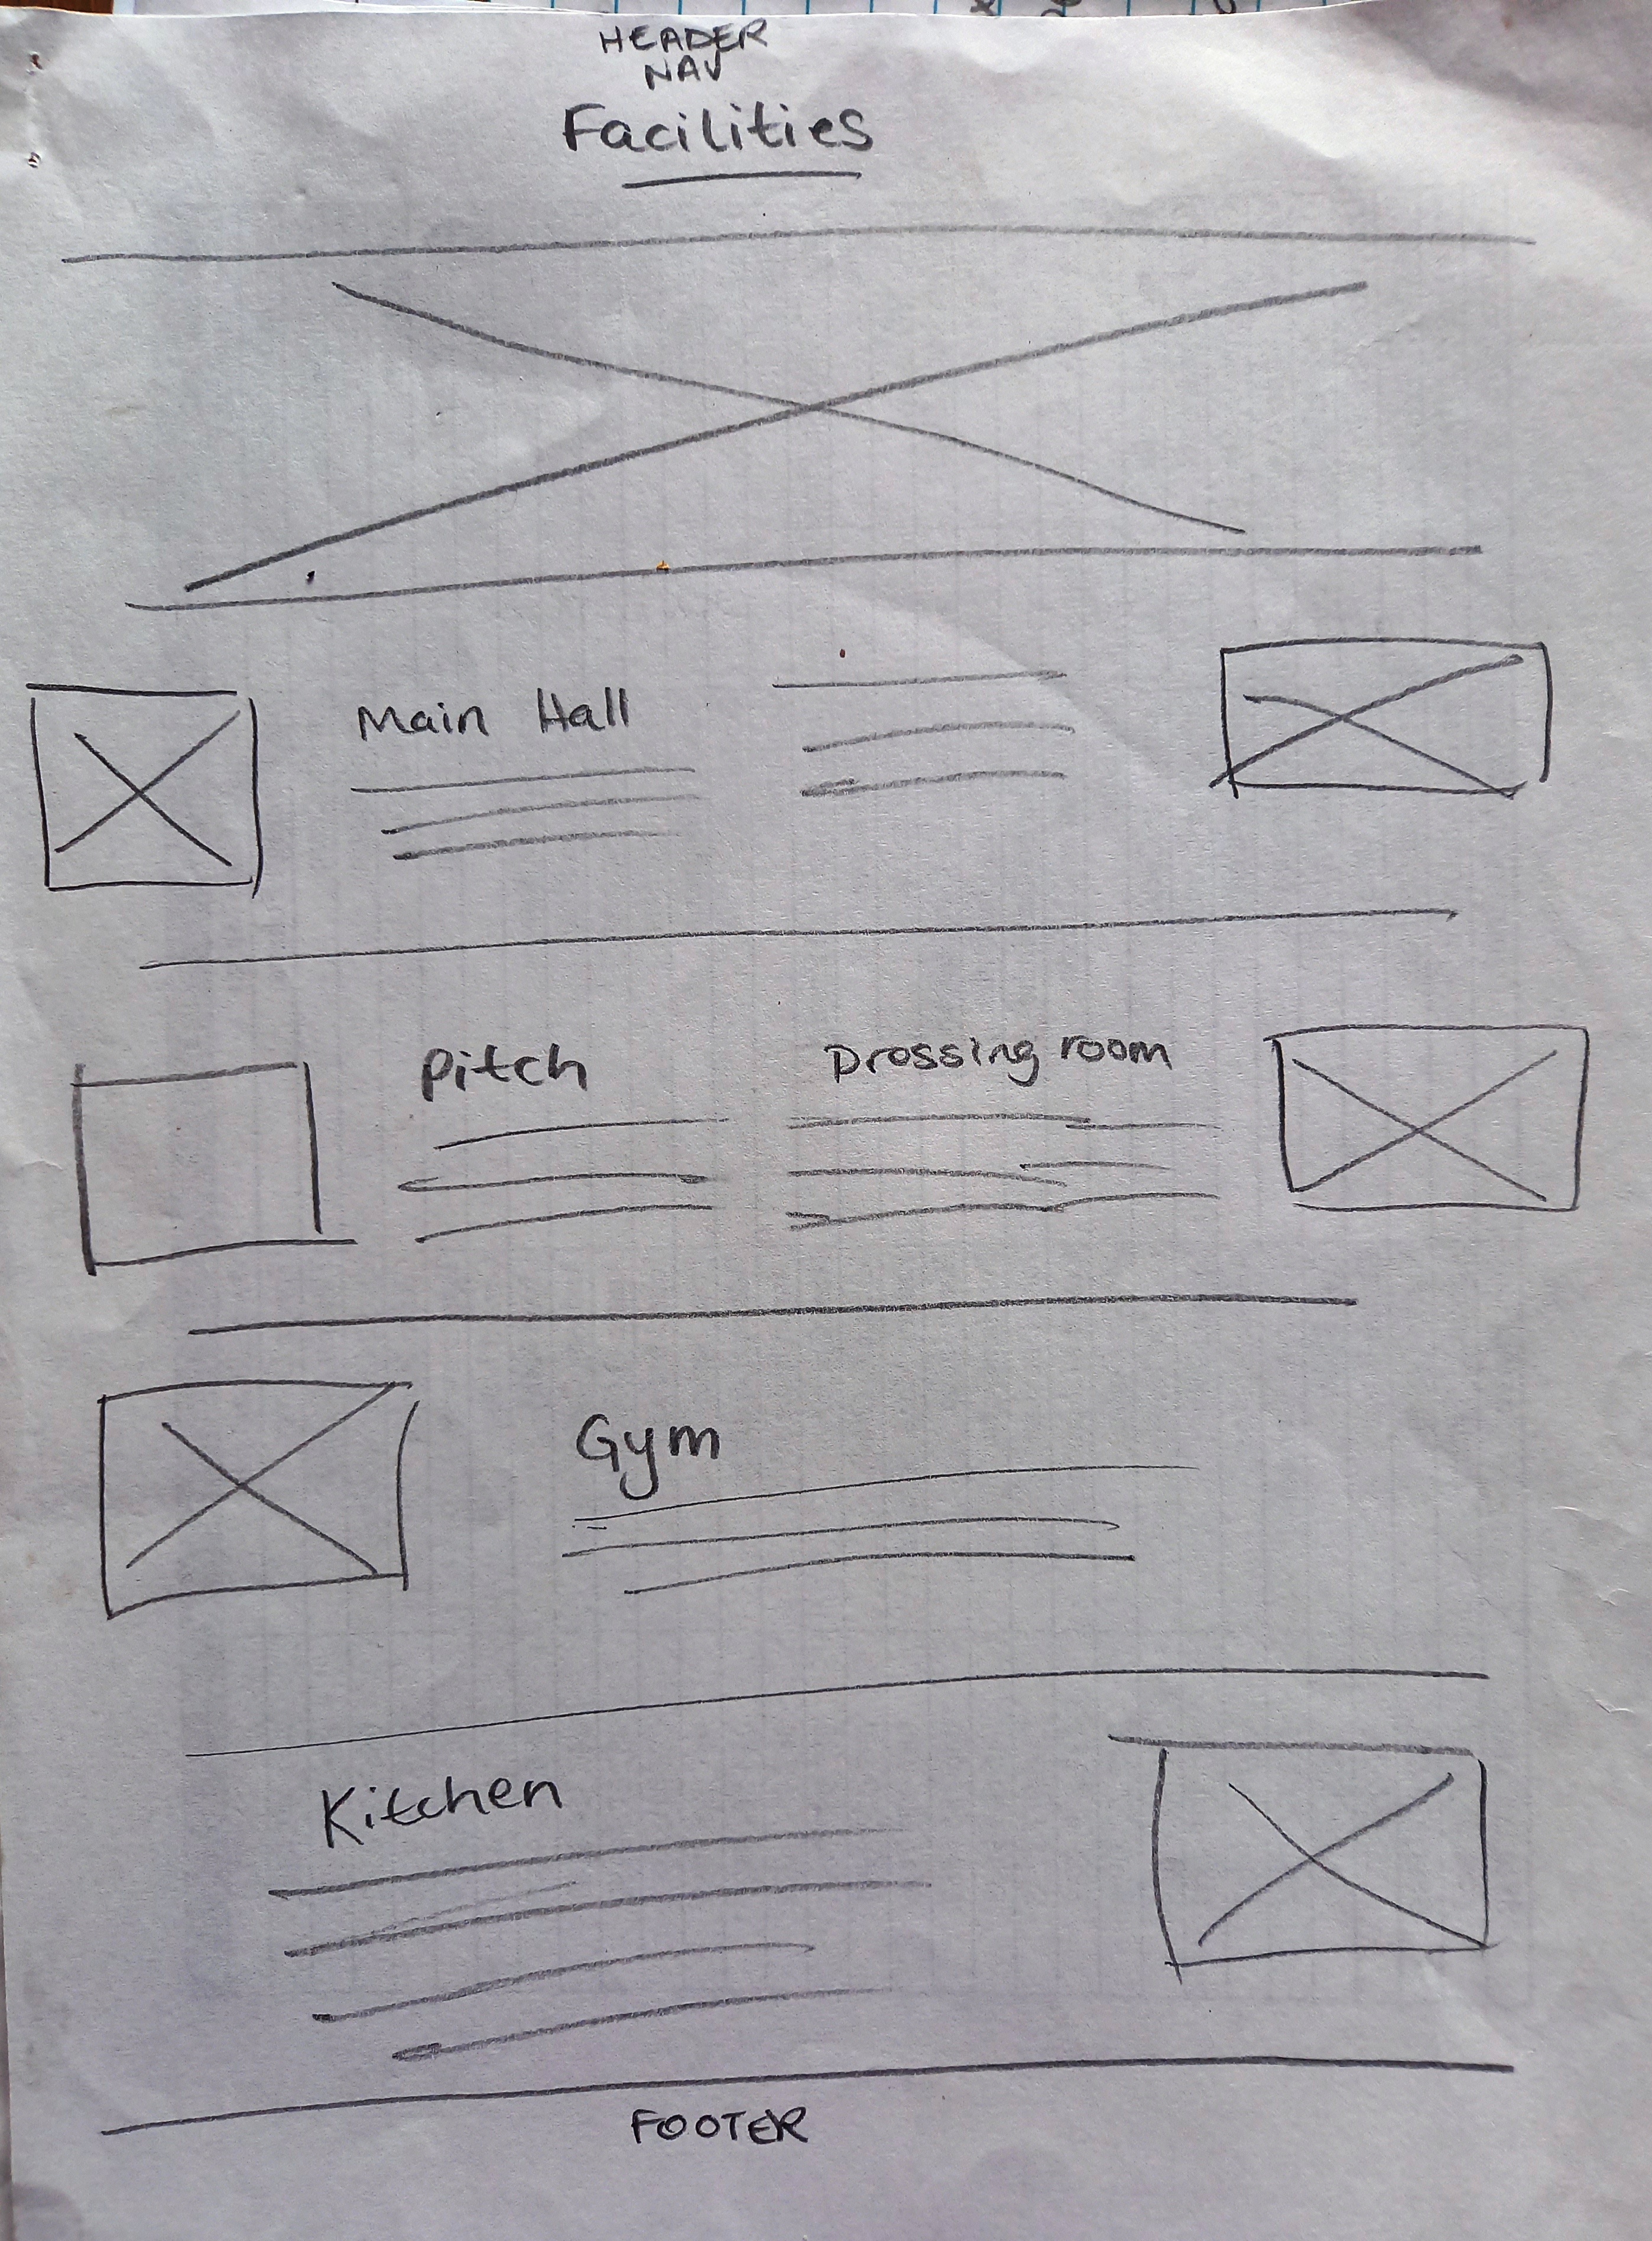 HEADER
NAV
Facilities
Main Hall
Pitch
Drossing room
Gym
Kitchen
FOOTER